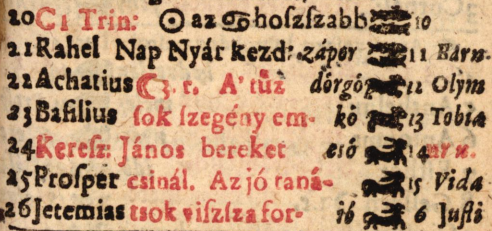 20 C 1 Trin: ☉ az ♋ hoſzſzabb 10
21 Rahel Nap Nyár kezd: zápor 11 Barn.
22 Achatius ☾ 3. r. A' tűz dörgö 12 Olym
23 Baſilius ſok ſzegény em- kö 13 Tobia
24 Keresz: János bereket eső 14
25 Proſper csinál. Az jó taná- 15 Vida
26 Jeremias tsok viſzſza for- jó 6 Juſti